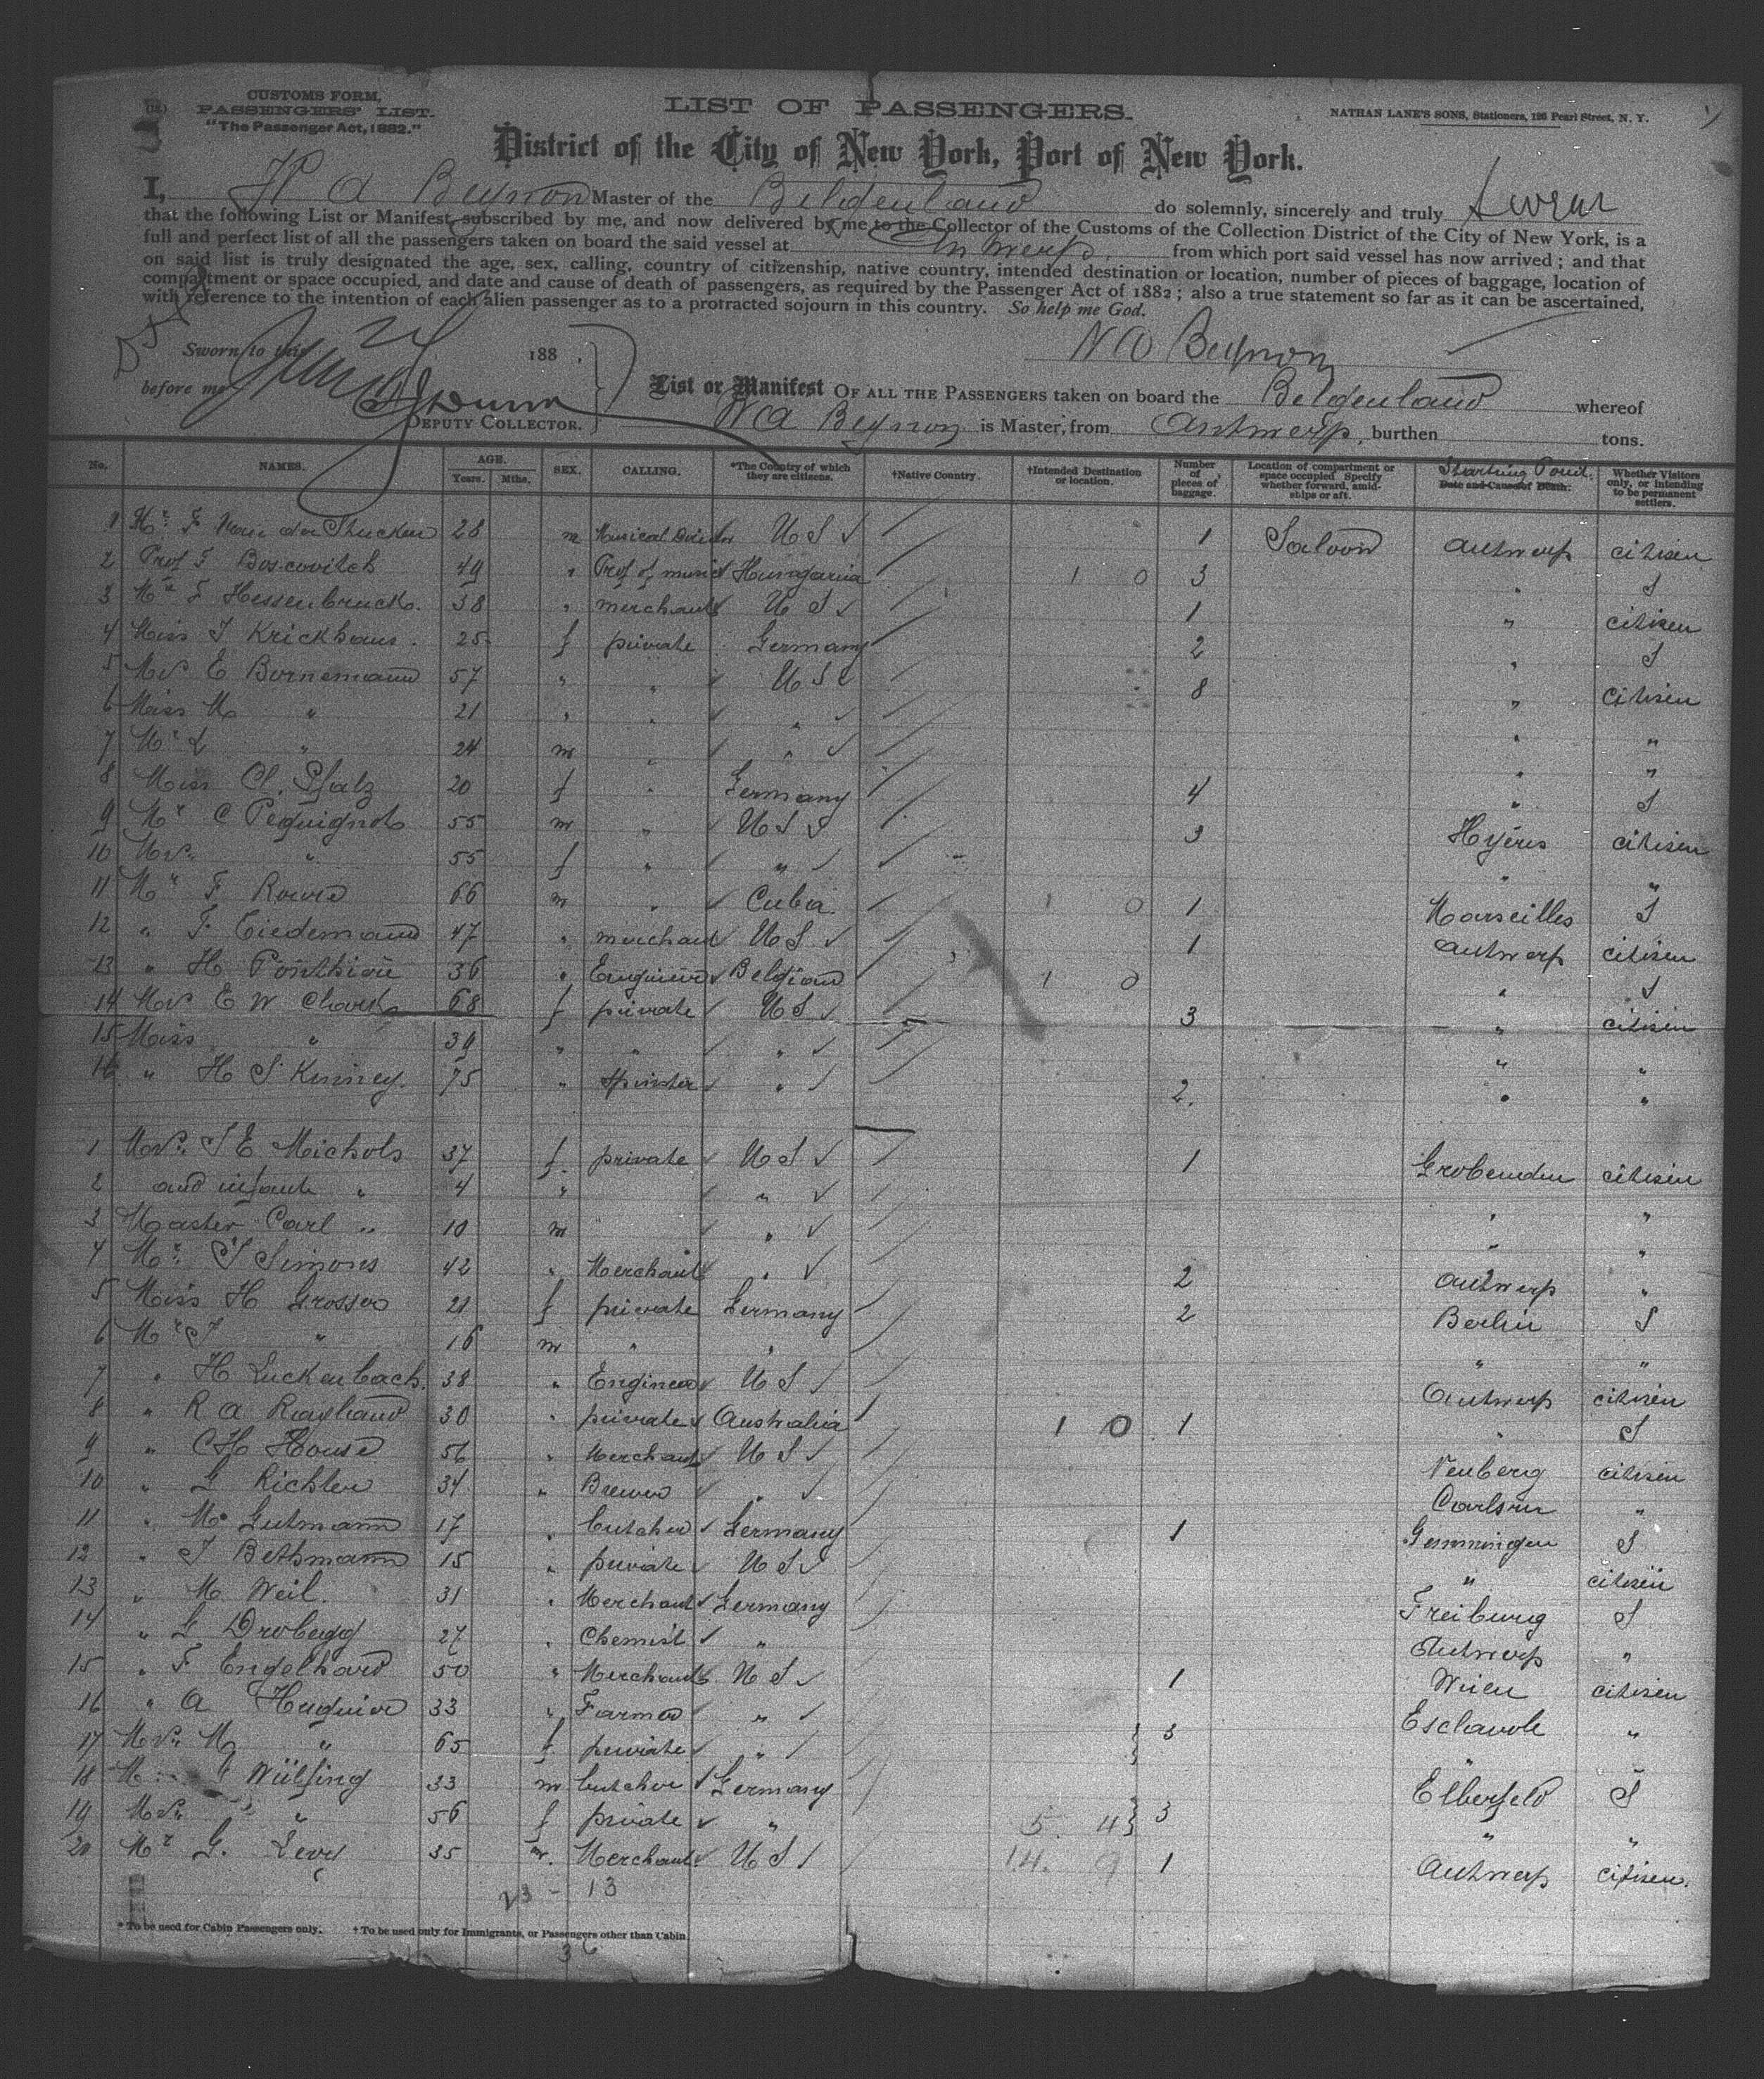 CUSTOMS FORM,
PASSENGERS' LIST.
"The Passenger Act, 1882."
LIST OF PASSENGERS.
NATHAN LANE'S SONS, Stationers, 126 Pearl Street, N. Y.
District of the City of New York, Port of New York.
I, A Beynon Master of the Belgenland do solemnly, sincerely and truly swear
that the following List or Manifest, subscribed by me, and now delivered by me to the Collector of the Customs of the Collection District of the City of New York, is a
full and perfect list of all the passengers taken on board the said vessel at Antwerp, from which port said vessel has now arrived; and that
on said list is truly designated the age, sex, calling, country of citizenship, native country, intended destination or location, number of pieces of baggage, location of
compartment or space occupied, and date and cause of death of passengers, as required by the Passenger Act of 1882; also a true statement so far as it can be ascertained,
with reference to the intention of each alien passenger as to a protracted sojourn in this country. So help me God.
Sworn to this June 188 . Beynon
before me Dunn
DEPUTY COLLECTOR.
List or Manifest OF ALL THE PASSENGERS taken on board the Belgenland whereof
A Beynon is Master, from Antwerp, burthen tons.
No. NAMES. AGE. Years. Mths. SEX. CALLING. *The Country of which they are citizens. †Native Country. †Intended Destination or location. Number of pieces of baggage. Location of compartment or space occupied Specify whether forward, amidships or aft. Starting Point. Date and Cause of Death. Whether Visitors only, or intending to be permanent settlers.
1 Mr. F Van der Stucken 28 m Musical Director U S 1 Saloon Antwerp citisen
2 Prof F Boscovitch 49 " Prof of music Hungaria 1 0 3 " S
3 Mr F Hessenbruck. 38 " merchant U S 1 " citisen
4 Miss J Krickhaus. 25 f private Germany 2 " S
5 Mrs E Bornemann 57 " " U S 8 " citisen
6 Miss M " 21 " " " " "
7 Mr " 24 m " " " "
8 Miss Cl. Pfalz 20 f " Germany 4 " S
9 Mr C Pequignot 55 m " U S 3 Hyères citisen
10 Mrs. " 55 f " " " "
11 Mr F 66 m " Cuba 1 0 1 Marseilles S
12 " F. Tiedemann 47 " merchant U S 1 Antwerp citisen
13 " H 36 " Engineer Belgium 1 0 " S
14 Mrs E W Clark 68 f private U S 3 " citisen
15 Miss " 39 " " " " "
16 " H S Kinney. 75 " spinster " 2. " "
1 Mrs. J E Nichols 37 f. private U S 1 citisen
2 and infant " 4 " " " "
3 Master Carl " 10 m " " "
4 Mr. J Simons 42 " Merchant " 2 Antwerp "
5 Miss H Grosser 21 f private Germany 2 Berlin S
6 Mr J " 16 m " " " "
7 " H Luckenbach. 38 " Engineer U S Antwerp citisen
8 " R A 30 " private Australia 1 0 1 " S
9 " C H House 56 " Merchant U S citisen
10 " G Richter 34 " Brewer " "
11 " M. Gutmann 17 " butcher Germany 1 Gemmingen S
12 " J Bethmann 15 " private U S " citisen
13 " M Weil. 31 " Merchant Germany Freiburg S
14 " G 27 " Chemist " Antwerp "
15 " F Engelhard 50 " Merchant U S 1 Wien citisen
16 " A Huguier 33 " Farmer " 3 "
17 Mrs. M " 65 f. private " " "
18 M Wülfing 33 m butcher Germany Elberfeld S
19 Mrs. " 56 f private " 5. 4 3 " "
20 Mr G. Levy 35 m. Merchant U S 14. 9 1 Antwerp citisen.
23 - 13
* To be used for Cabin Passengers only. † To be used only for Immigrants, or Passengers other than Cabin.
36